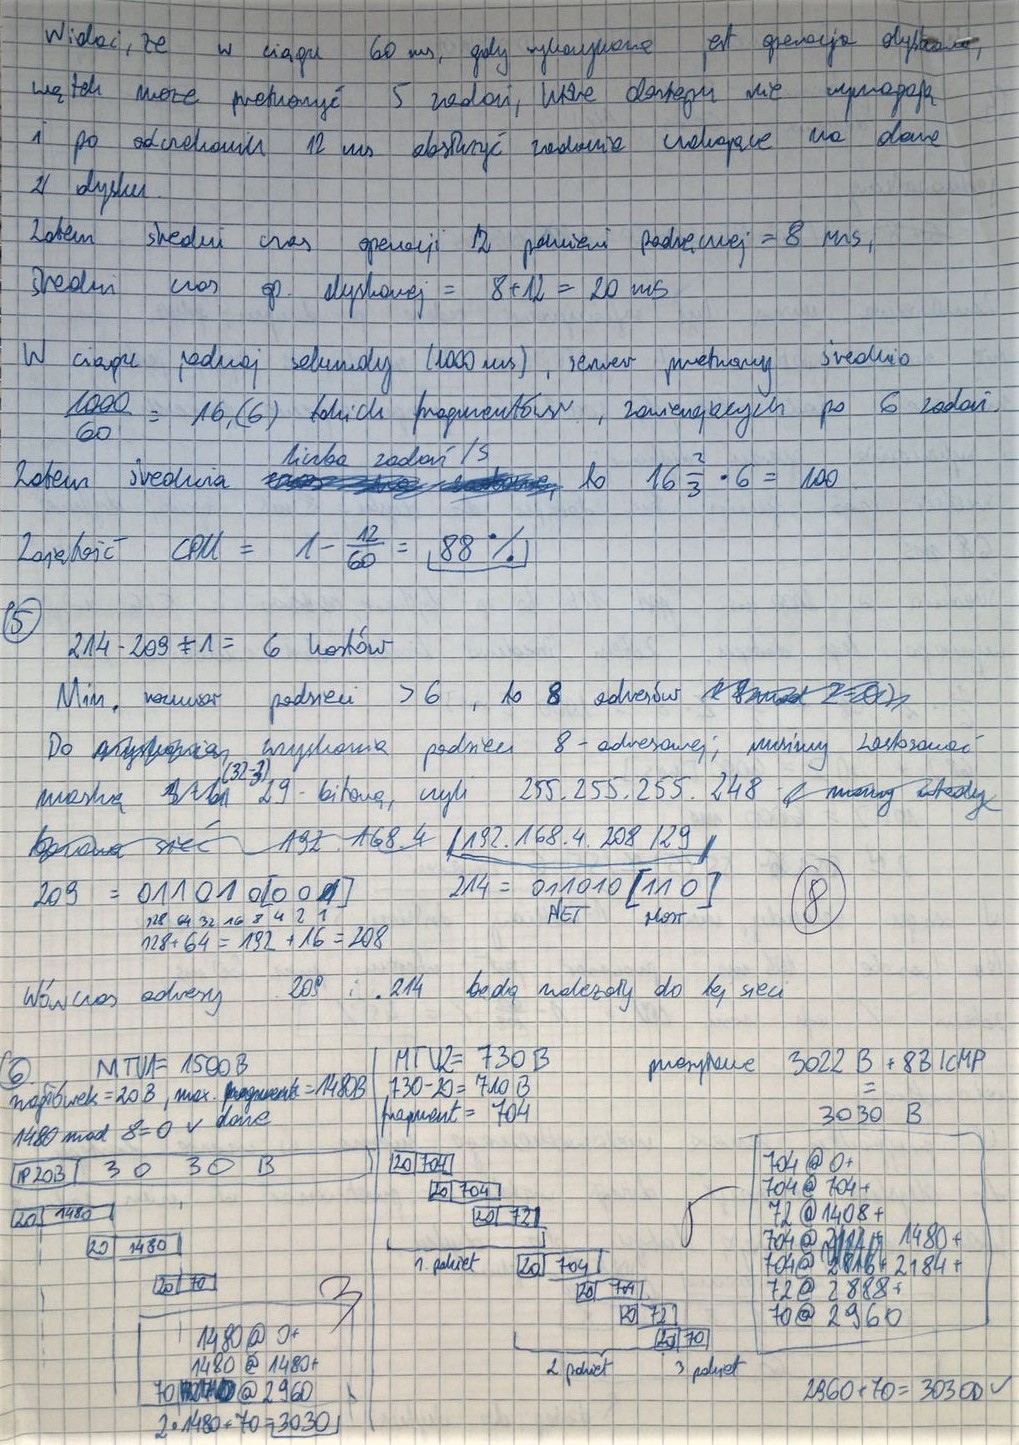 Widać, że w ciągu 60 ms, gdy wykonywana jest operacja dyskowa,
wątek może przetworzyć 5 zadań, które dostępu nie wymagają
i po odczekaniu 12 ms obsłużyć zadania czekające na dane
z dysku.
Zatem średni czas operacji z pamięci podręcznej = 8 ms,
średni czas op. dyskowej = 8+12 = 20 ms
W ciągu jednej sekundy (1000 ms), serwer przetworzy średnio
1000/60 = 16,(6) takich fragmentów, zawierających po 6 zadań.
Zatem średnia liczba zadań/s to 16 2/3 · 6 = 100
Zajętość CPU = 1 - 12/60 = 88 %
5
214 - 209 + 1 = 6 hostów
Min. rozmiar podsieci > 6, to 8 adresów
Do uzyskania podsieci 8-adresowej, musimy zastosować
maskę (32-3) 29-bitową, czyli 255.255.255.248
192.168.4.208/29
209 = 011010[001] 214 = 011010[110] 8
128 64 32 16 8 4 2 1 NET HOST
128+64 = 192 +16 = 208
Wówczas adresy .209 i .214 będą należały do tej sieci
6 MTU1= 1500B
nagłówek = 20B, max. fragment = 1480B
dane
1480 mod 8=0 ✓
IP20B 3030 B
20 1480
20 1480
20 70
3
1480 @ 0+
1480 @ 1480+
70 @ 2960
2·1480+70=3030
MTU2= 730 B
730-20= 710 B
fragment = 704
20 704
20 704
20 72
1. pakiet
20 704
20 704
20 72
20 70
2 pakiet 3 pakiet
przesyłane 3022 B + 8B ICMP
=
3030 B
704 @ 0+
704 @ 704+
72 @ 1408+
704 @ 1480+
704 @ 2184+
72 @ 2888+
70 @ 2960
2960+70 = 3030 ✓